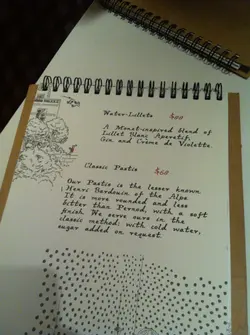 Water-Lillets
A Monet-inspired blend of
Lillet Blanc Aperetif,
Gin and Crème de Violette.
Classic Pastis
Our Pastis is the lesser known
Henri Bardouin of the Alps
It is more rounded and less
bitter than Pernod, with a soft
finish. We serve ours in the
classic method: with cold water,
sugar added on request.